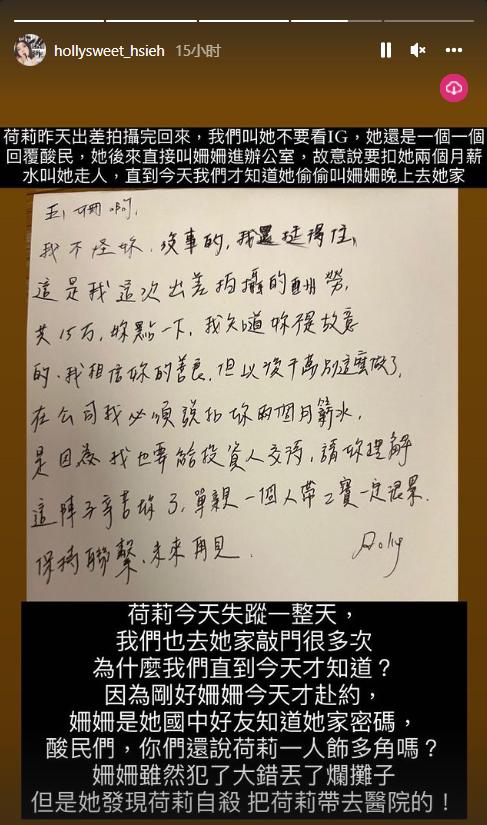 hollysweet_hsieh 15小时
荷莉昨天出差拍攝完回來，我們叫她不要看IG，她還是一個一個
回覆酸民，她後來直接叫姍姍進辦公室，故意說要扣她兩個月薪
水叫她走人，直到今天我們才知道她偷偷叫姍姍晚上去她家
珊啊,
我不怪妳,沒事的,我還挺得住,
這是我這次出差拍攝的酬勞,
共15万,妳點一下,我知道妳不是故意
的,我相信妳的善良,但以後千萬別這麼做了,
在公司我必須說扣妳兩個月薪水,
是因為我也要給投資人交待,請妳理解
這陣子辛苦妳了,單親一個人帶2寶一定很累.
保持聯繫、未來再見.
荷莉今天失蹤一整天，
我們也去她家敲門很多次
為什麼我們直到今天才知道？
因為剛好姍姍今天才赴約，
姍姍是她國中好友知道她家密碼，
酸民們，你們還說荷莉一人飾多角嗎？
姍姍雖然犯了大錯丟了爛攤子
但是她發現荷莉自殺 把荷莉帶去醫院的！